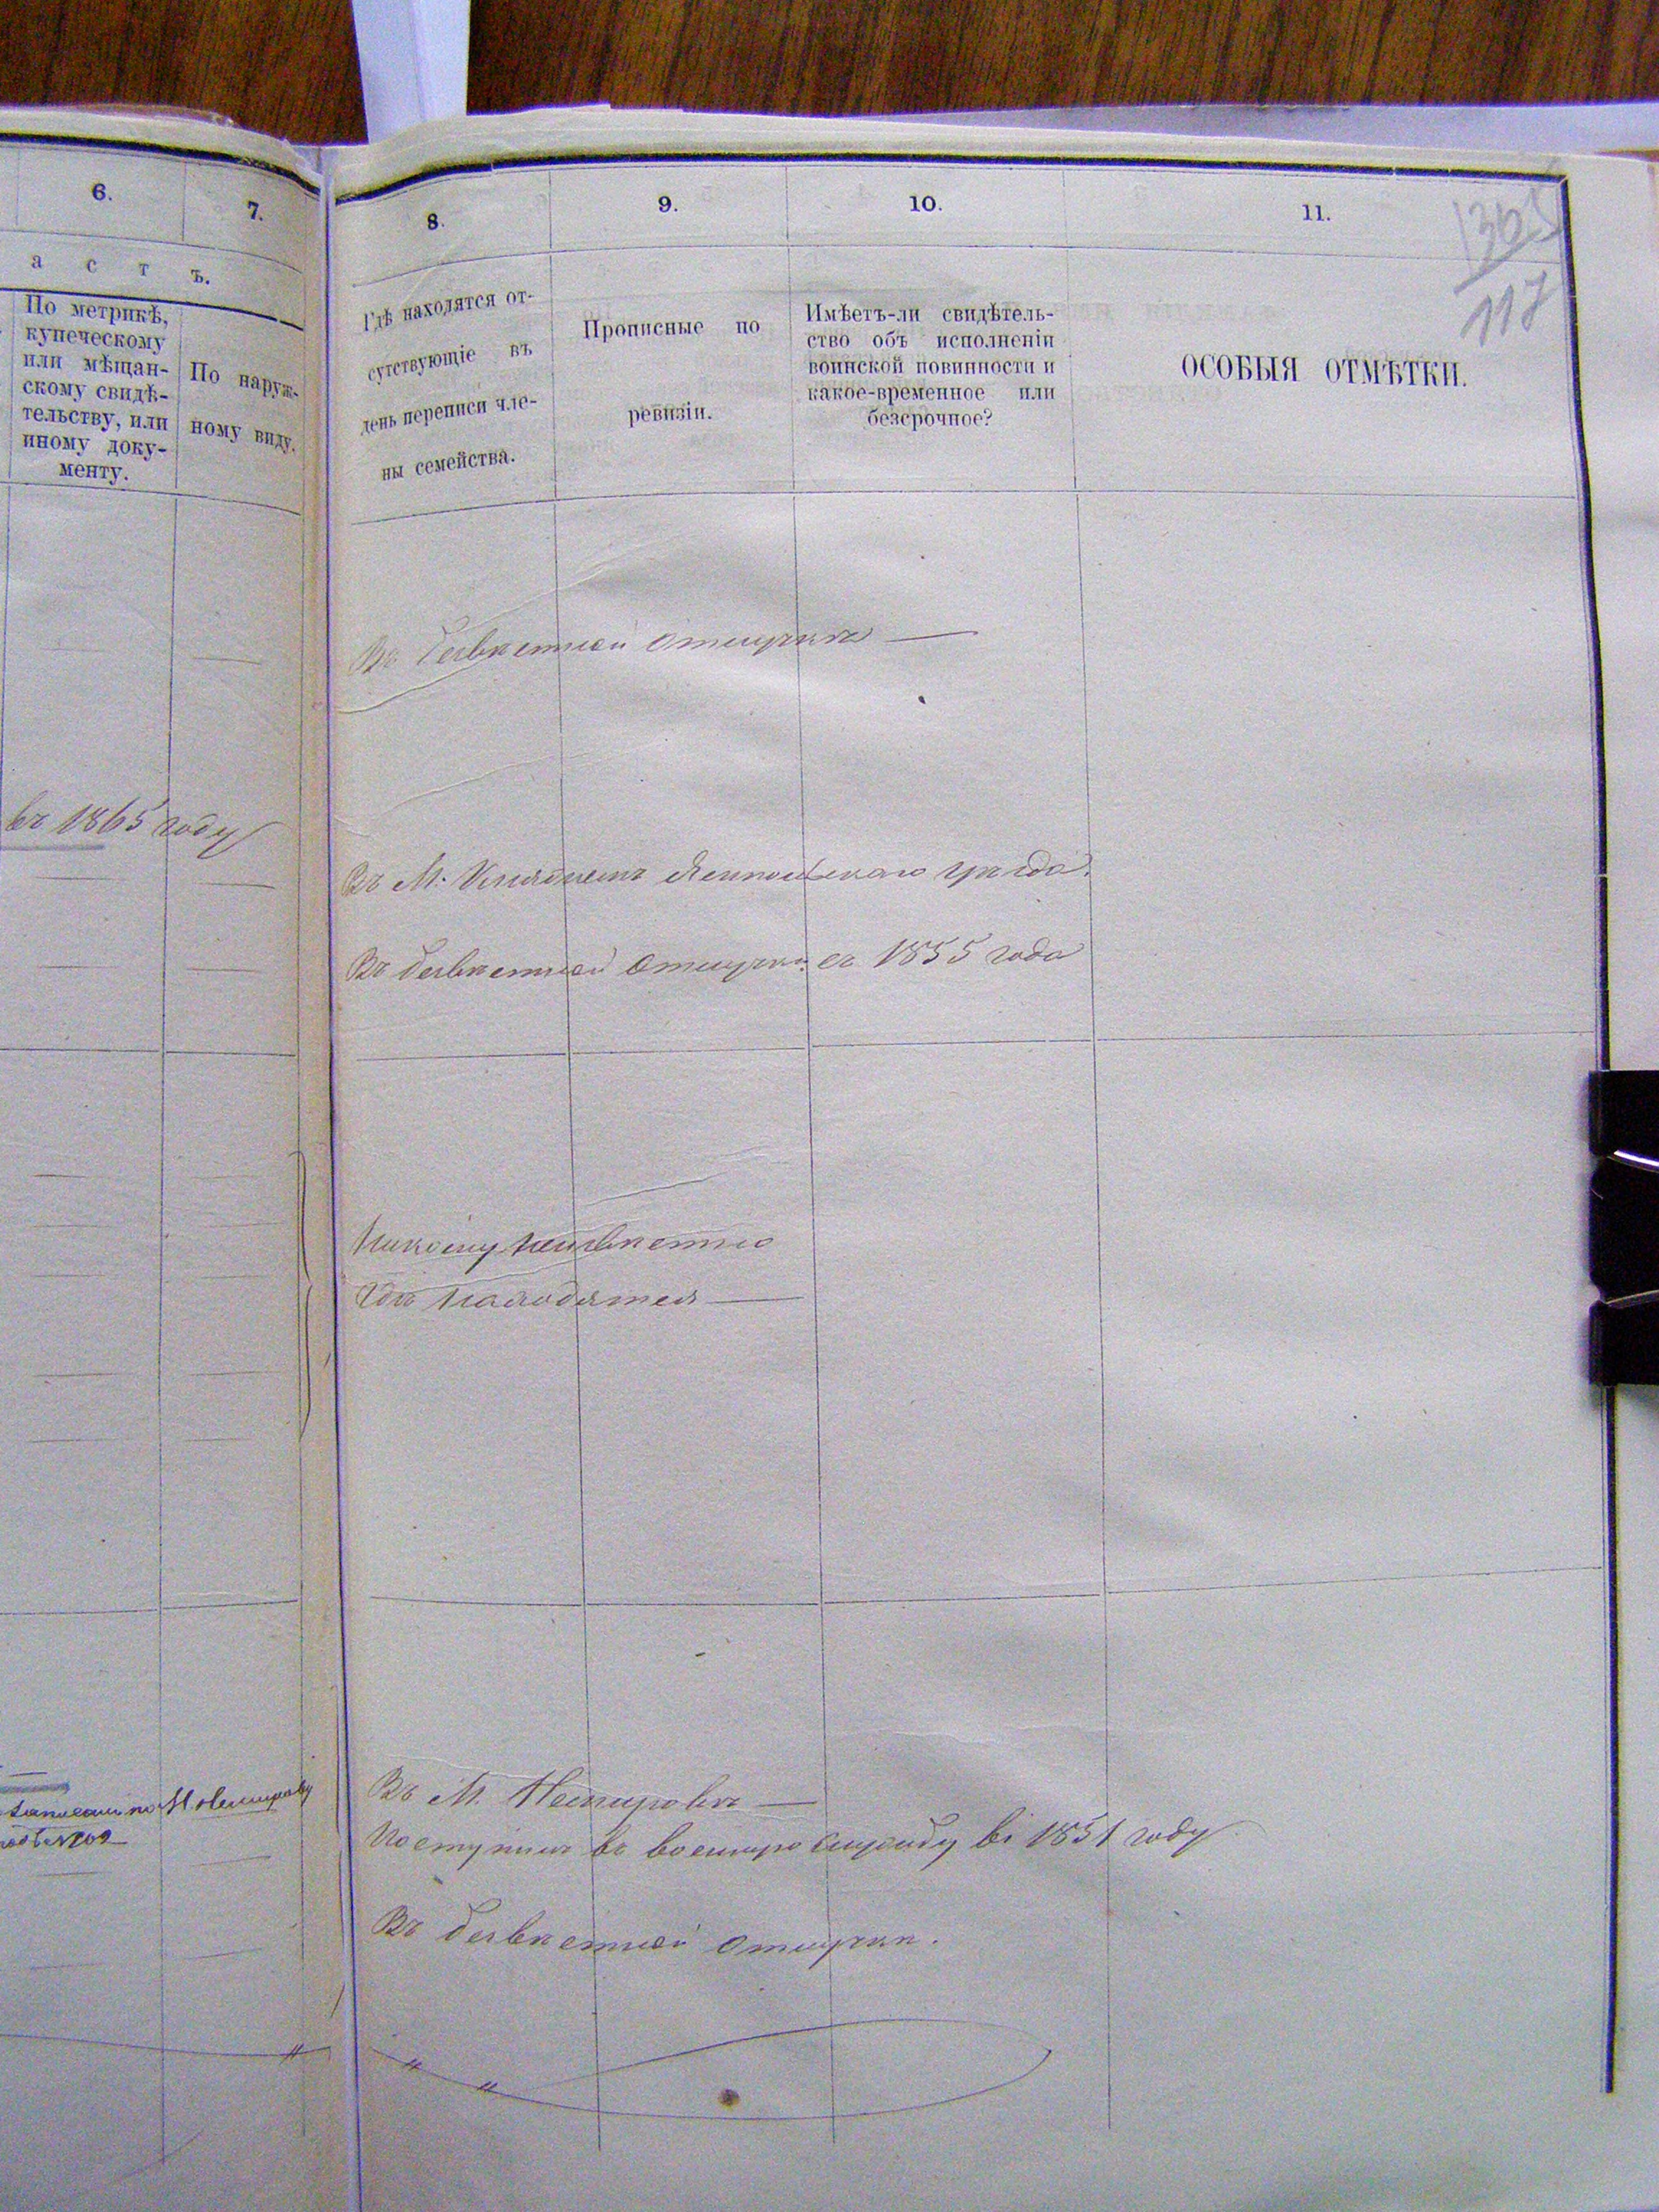 6.
7.
а с т ъ.
По метрикѣ,
купеческому
или мѣщан-
скому свидѣ-
тельству, или
иному доку-
менту.
По наруж-
ному виду.
въ 1865 году
8.
9.
10.
11.
117
Гдѣ находятся от-
сутствующіе въ
день переписи чле-
ны семейства.
Прописные по
ревизіи.
Имѣетъ-ли свидѣтель-
ство объ исполненіи
воинской повинности и
какое-временное или
безсрочное?
ОСОБЫЯ ОТМѢТКИ.
Въ безвѣстной отлучкѣ —
Въ М. уѣзда.
Въ безвѣстной отлучкѣ съ 1855 года
Никому неизвѣстно
гдѣ находятся —
Въ М. Немировѣ —
Поступилъ въ военную службу въ 1851 году
Въ безвѣстной отлучкѣ.